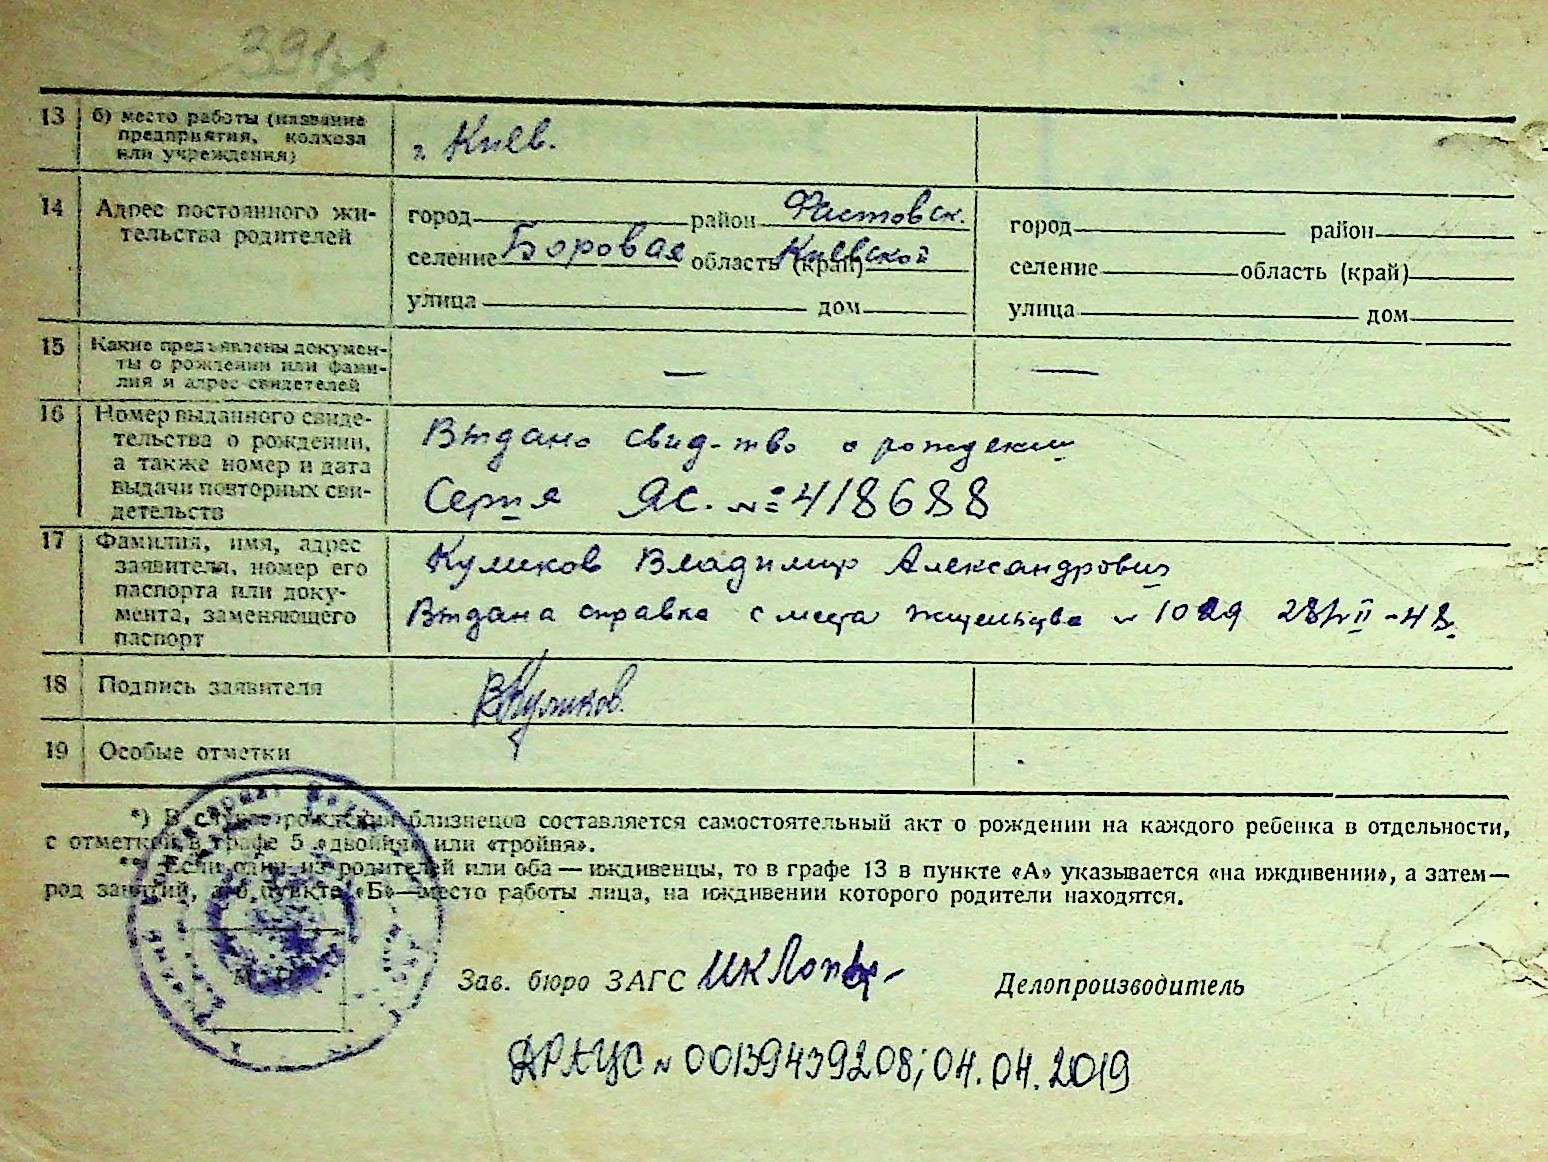 13 б) место работы (название
предприятия, колхоза
или учреждения)
г. Киев.
14 Адрес постоянного жи-
тельства родителей
город район Фастовск.
селение Боровая область (край) Киевской
улица дом
город район
селение область (край)
улица дом
15 Какие предъявлены докумен-
ты о рождении или фами-
лия и адрес свидетелей
— —
16 Номер выданного свиде-
тельства о рождении,
а также номер и дата
выдачи повторных сви-
детельств
Выдано свид-тво о рождении
Серия ЯС. № 418688
17 Фамилия, имя, адрес
заявителя, номер его
паспорта или доку-
мента, заменяющего
паспорт
Куликов Владимир Александрович
Выдана справка с места жительства N 1029
18 Подпись заявителя
ВКуликов.
19 Особые отметки
*) В случае рождения близнецов составляется самостоятельный акт о рождении на каждого ребенка в отдельности,
с отметкой в графе 5 «двойня» или «тройня».
Если один из родителей или оба — иждивенцы, то в графе 13 в пункте «А» указывается «на иждивении», а затем—
род занятий, а в пункте «Б»—место работы лица, на иждивении которого родители находятся.
Зав. бюро ЗАГС Делопроизводитель
ДРАЦС N 00139439208; 04.04.2019